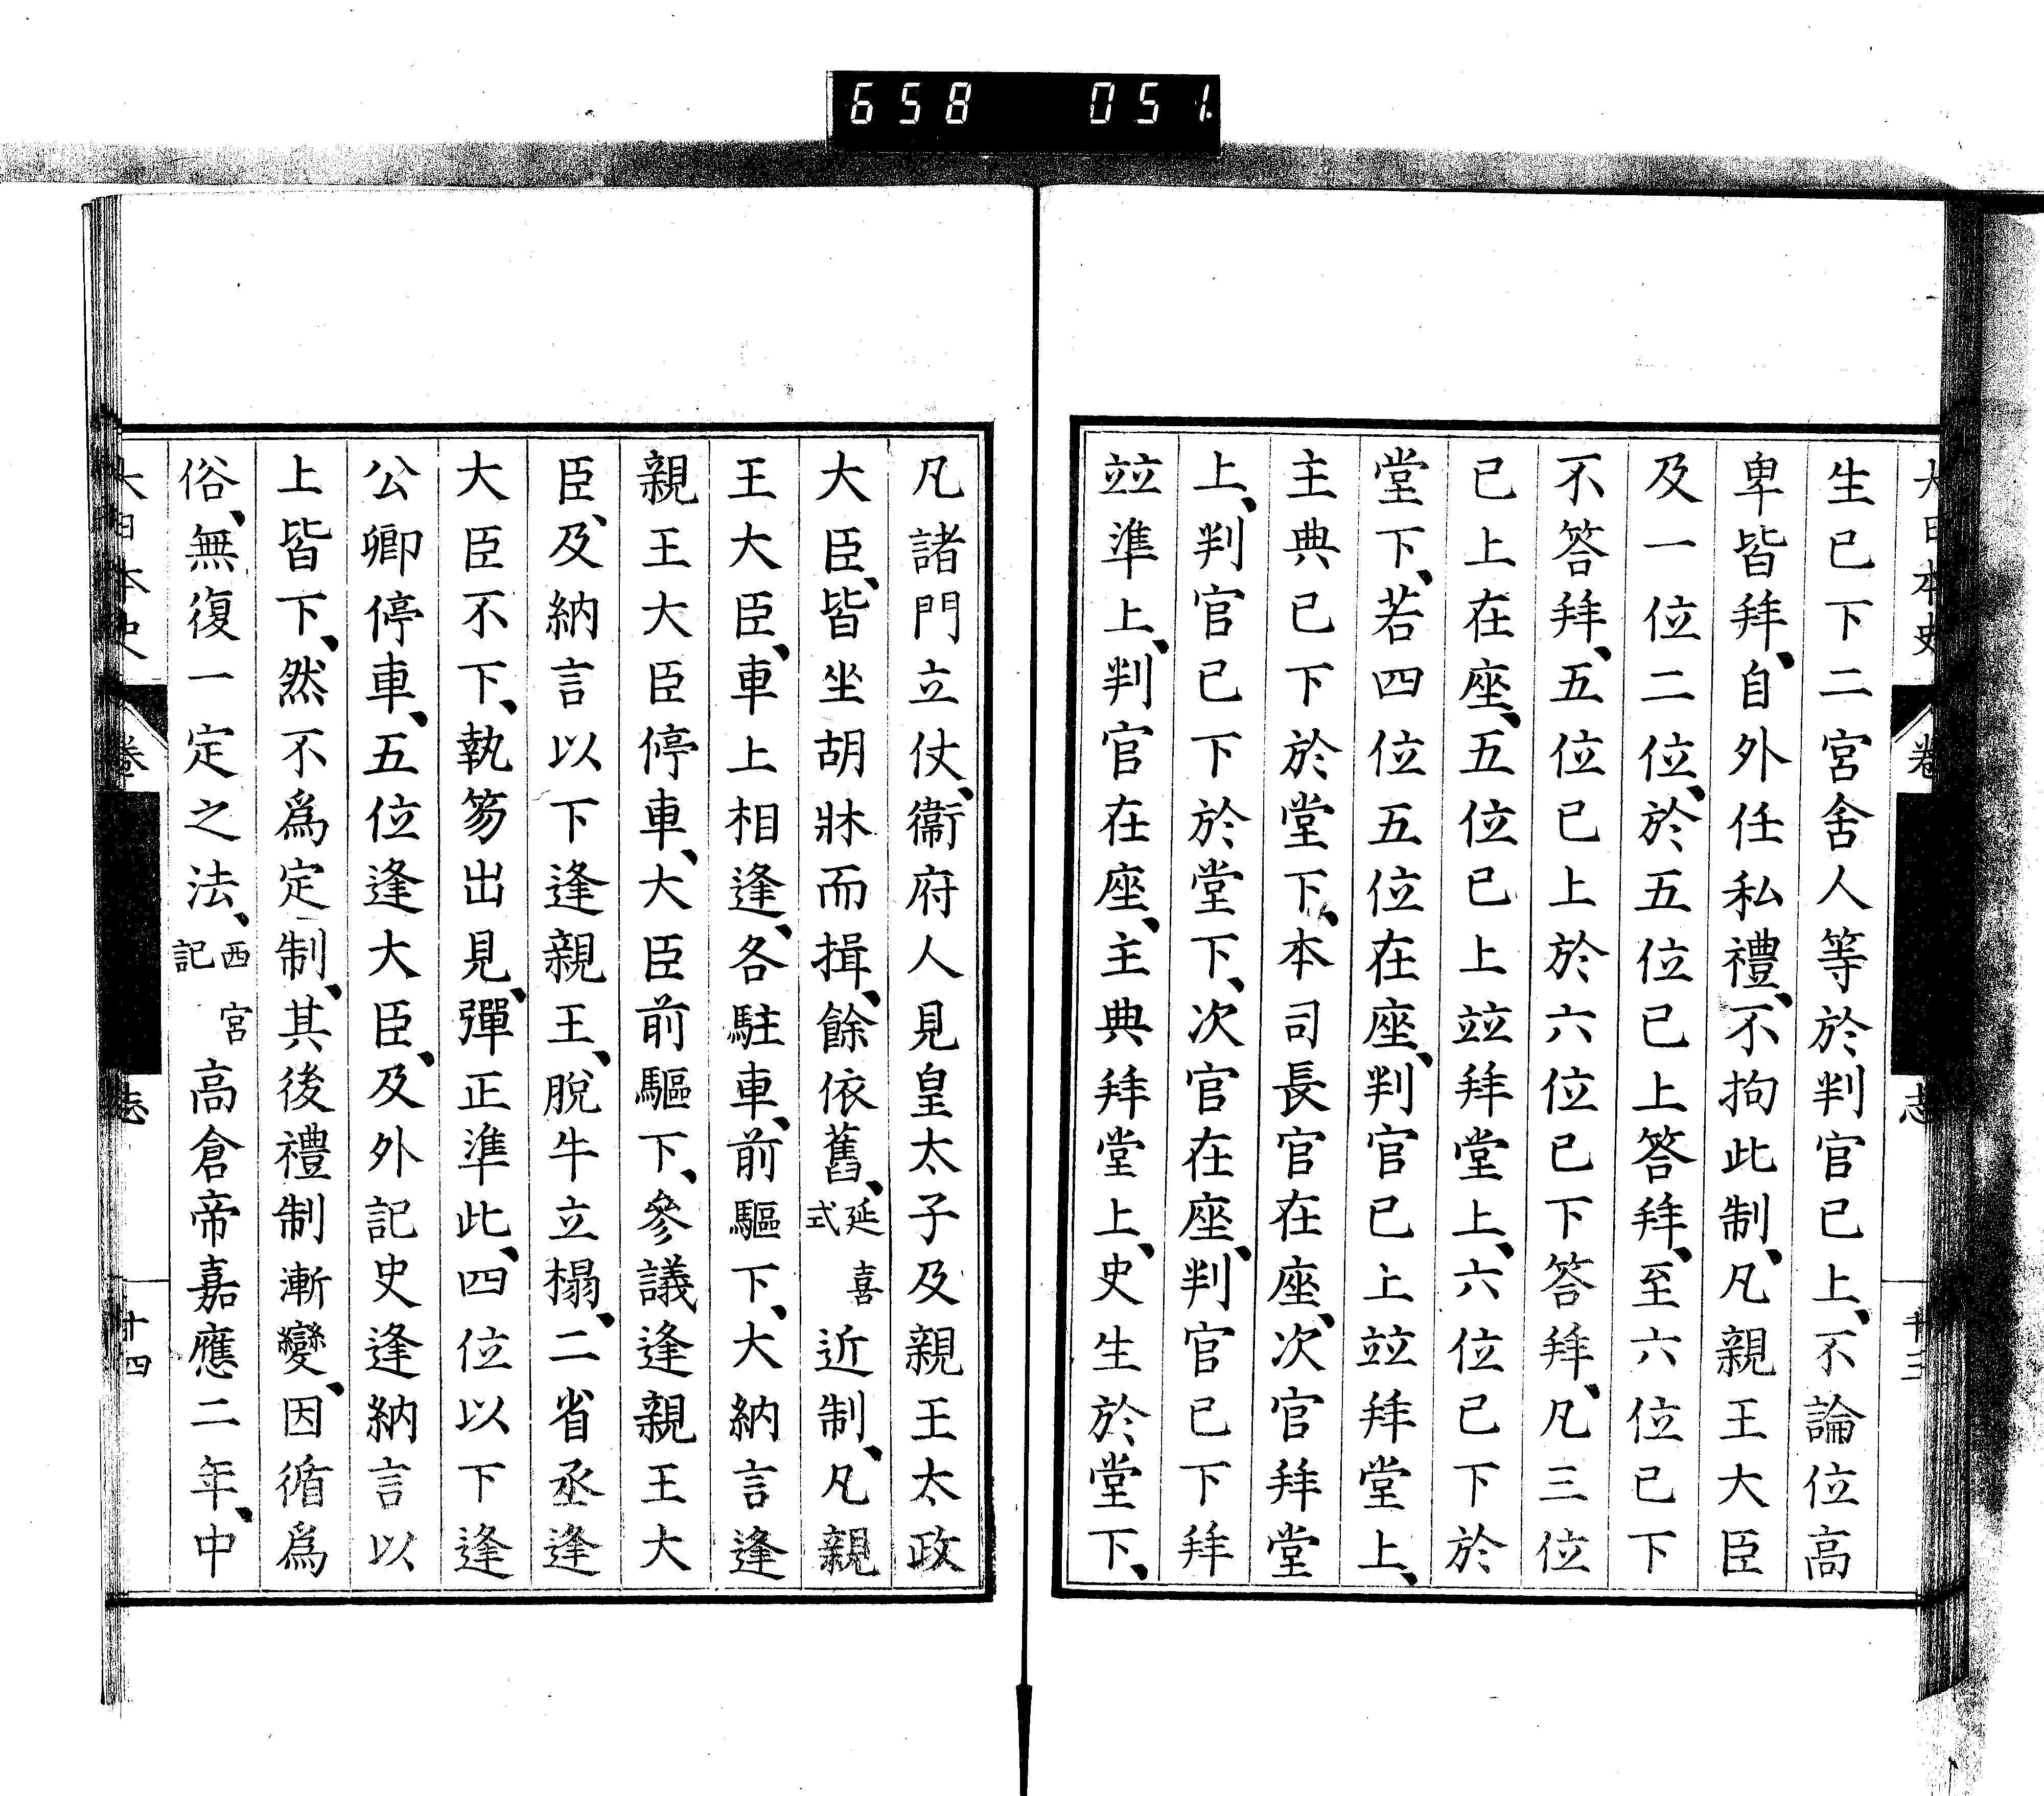 658 051
大日本史 卷 志 十三
生已下二宮舍人等於判官已上、不論位高
卑皆拜、自外任私禮、不拘此制、凡親王大臣
及一位二位、於五位已上答拜、至六位已下
不答拜、五位已上於六位已下答拜、凡三位
已上在座、五位已上竝拜堂上、六位已下於
堂下、若四位五位在座、判官已上竝拜堂上、
主典已下於堂下、本司長官在座、次官拜堂
上、判官已下於堂下、次官在座、判官已下拜
竝準上、判官在座、主典拜堂上、史生於堂下、
凡諸門立仗、衞府人見皇太子及親王太政
大臣、皆坐胡牀而揖、餘依舊、延喜式 近制、凡親
王大臣、車上相逢、各駐車、前驅下、大納言逢
親王大臣停車、大臣前驅下、參議逢親王大
臣、及納言以下逢親王、脫牛立榻、二省丞逢
大臣不下、執笏出見、彈正準此、四位以下逢
公卿停車、五位逢大臣、及外記史逢納言以
上皆下、然不爲定制、其後禮制漸變、因循爲
俗、無復一定之法、西宮記 高倉帝嘉應二年、中
大日本史 卷 志 十四